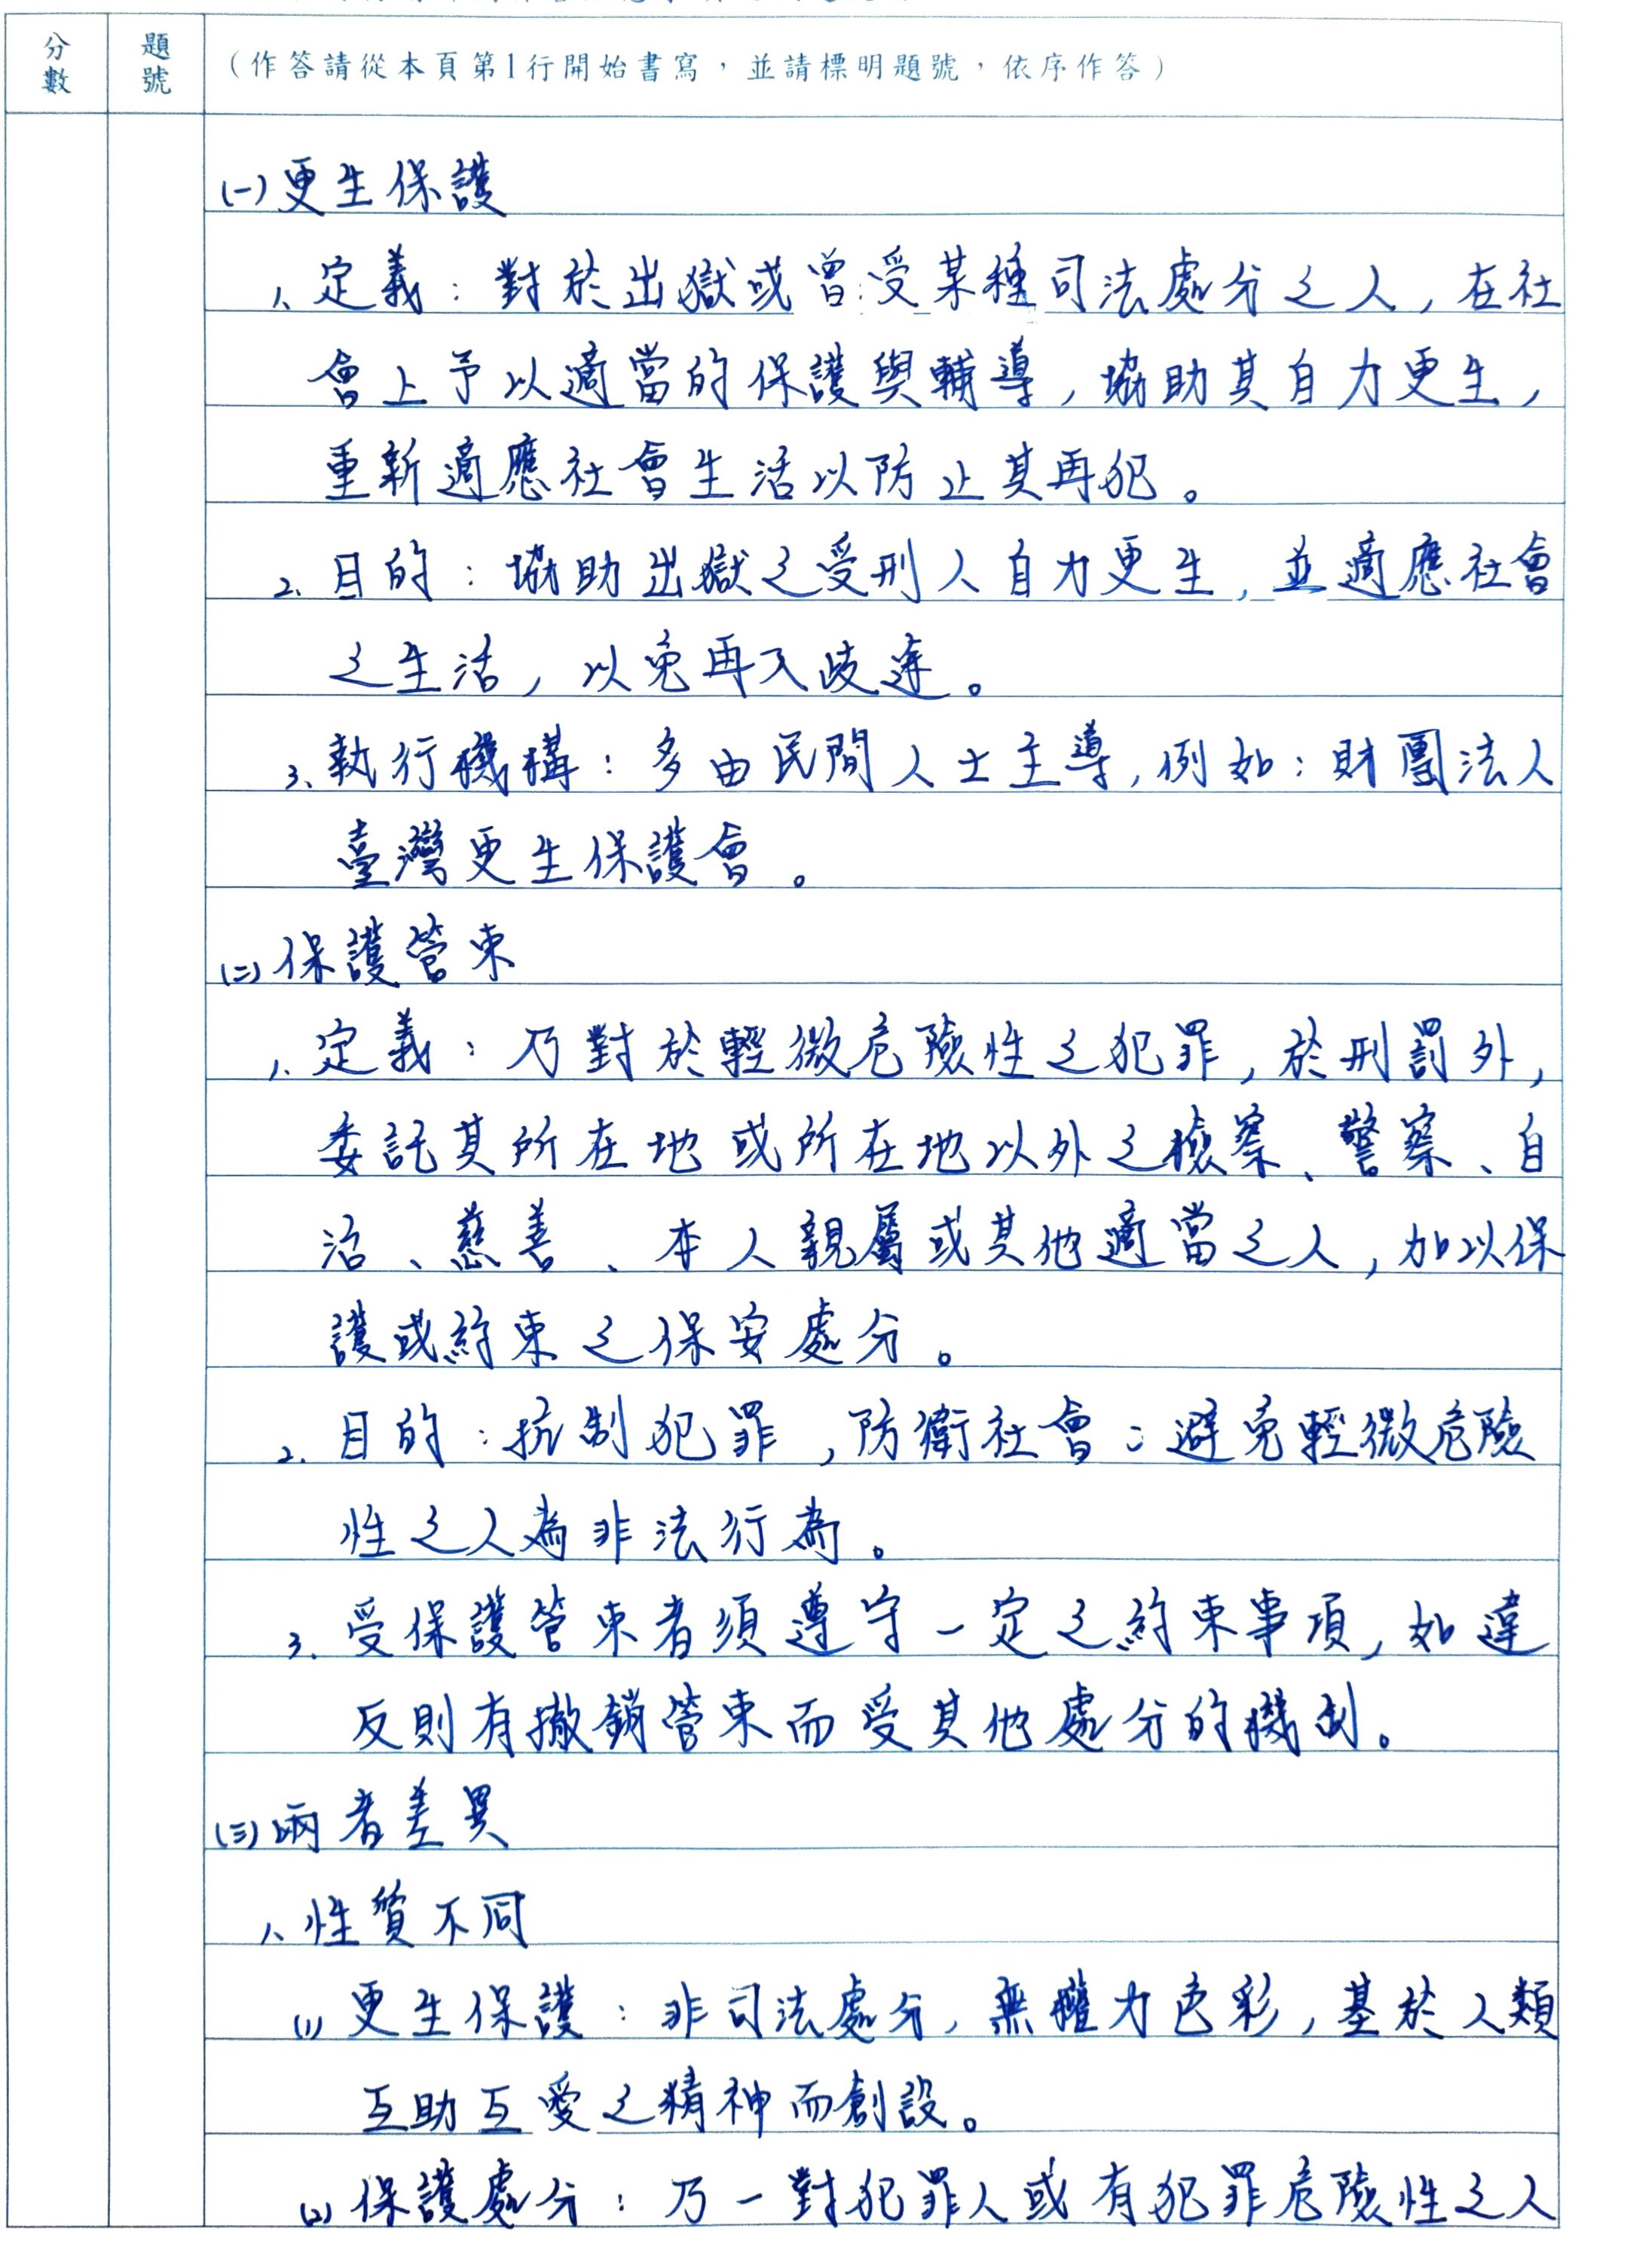 分數
題號
（作答請從本頁第1行開始書寫，並請標明題號，依序作答）
(一)更生保護
1、定義：對於出獄或曾受某種司法處分之人，在社
會上予以適當的保護與輔導，協助其自力更生，
重新適應社會生活以防止其再犯。
2、目的：協助出獄之受刑人自力更生，並適應社會
之生活，以免再入歧途。
3、執行機構：多由民間人士主導，例如：財團法人
臺灣更生保護會。
(二)保護管束
1、定義：乃對於輕微危險性之犯罪，於刑罰外，
委託其所在地或所在地以外之檢察、警察、自
治、慈善、本人親屬或其他適當之人，加以保
護或約束之保安處分。
2、目的：抗制犯罪，防衛社會；避免輕微危險
性之人為非法行為。
3、受保護管束者須遵守一定之約束事項，如違
反則有撤銷管束而受其他處分的機制。
(三)兩者差異
1、性質不同
(1)更生保護：非司法處分，無權力色彩，基於人類
互助互愛之精神而創設。
(2)保護處分：乃一對犯罪人或有犯罪危險性之人